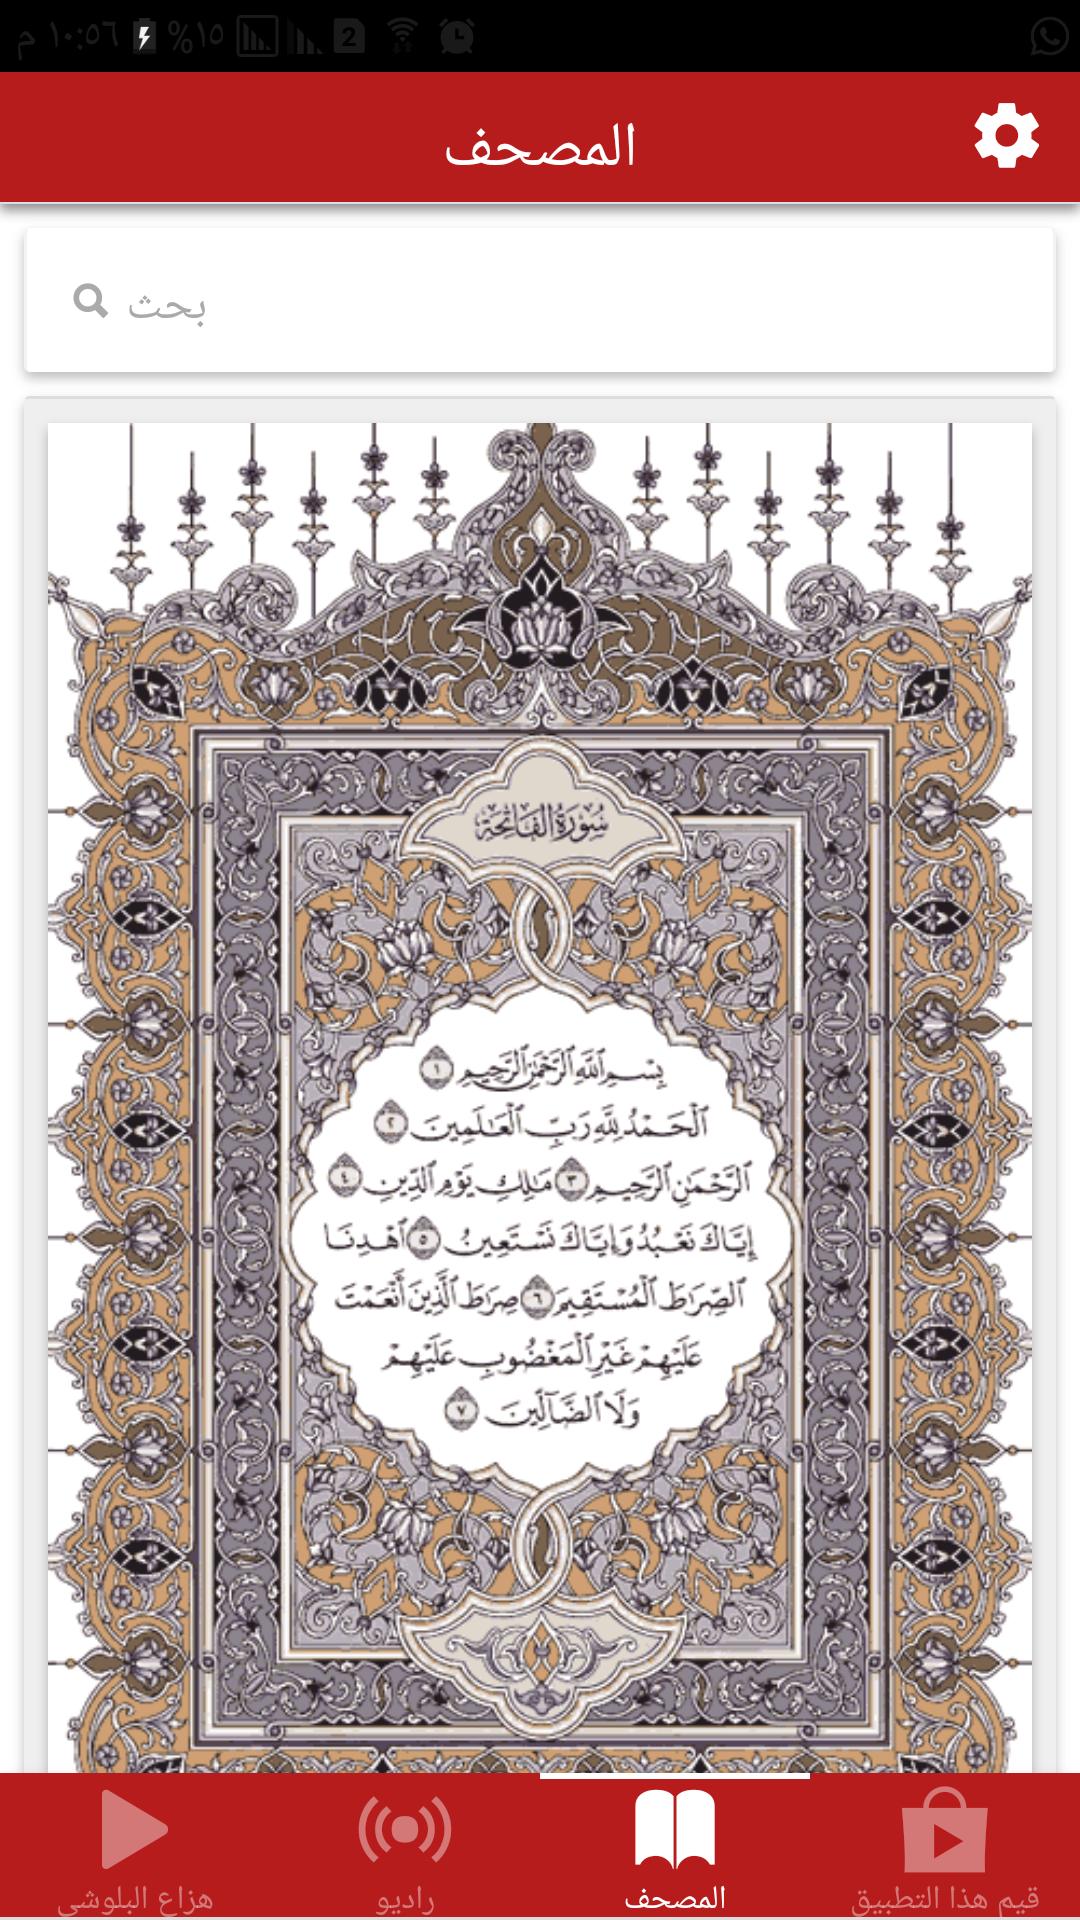 ١٠:٥٦ م
%١٥
2
المصحف
بحث
سُورَةُ الفَاتِحَةِ
بِسْمِ ٱللَّهِ ٱلرَّحْمَٰنِ ٱلرَّحِيمِ ١
ٱلْحَمْدُ لِلَّهِ رَبِّ ٱلْعَٰلَمِينَ ٢
ٱلرَّحْمَٰنِ ٱلرَّحِيمِ ٣ مَٰلِكِ يَوْمِ ٱلدِّينِ ٤
إِيَّاكَ نَعْبُدُ وَإِيَّاكَ نَسْتَعِينُ ٥ ٱهْدِنَا
ٱلصِّرَٰطَ ٱلْمُسْتَقِيمَ ٦ صِرَٰطَ ٱلَّذِينَ أَنْعَمْتَ
عَلَيْهِمْ غَيْرِ ٱلْمَغْضُوبِ عَلَيْهِمْ
وَلَا ٱلضَّآلِّينَ ٧
قيم هذا التطبيق
المصحف
راديو
هزاع البلوشي